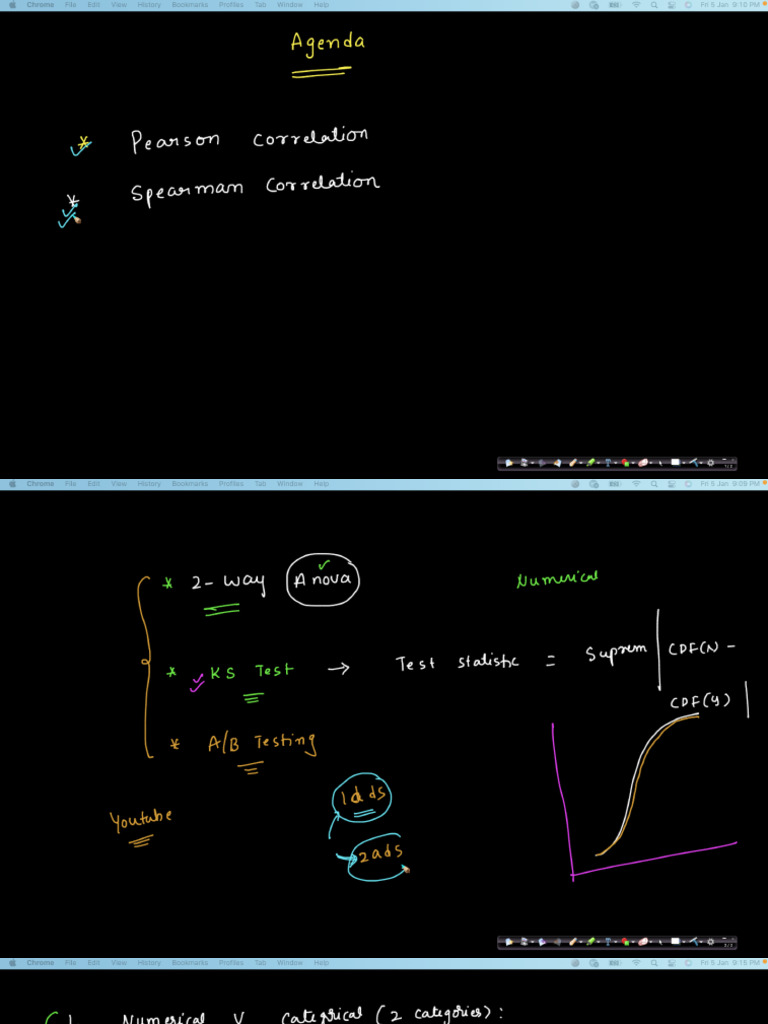 Chrome File Edit View History Bookmarks Profiles Tab Window Help Fri 5 Jan 9:10 PM
Agenda
* Pearson Correlation
* Spearman Correlation
Chrome File Edit View History Bookmarks Profiles Tab Window Help Fri 5 Jan 9:09 PM
* 2-way Anova
Numerical
* KS Test → Test statistic = Suprem | CDF(X) -
CDF(Y) |
* A/B Testing
Youtube
1 ads
2 ads
Chrome File Edit View History Bookmarks Profiles Tab Window Help Fri 5 Jan 9:15 PM
Numerical V Categrical (2 categories):